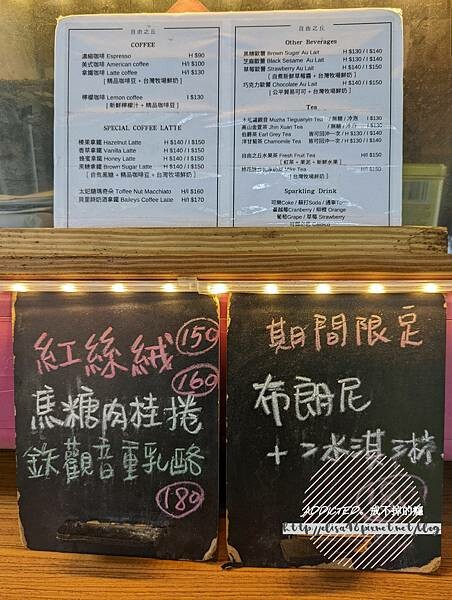 自由之丘
COFFEE
濃縮咖啡 Espresso H $90
美式咖啡 American coffee H/I $100
拿鐵咖啡 Latte coffee H/I $130
[ 精品咖啡豆 + 台灣牧場鮮奶 ]
檸檬咖啡 Lemon coffee I $150
[ 新鮮檸檬汁 + 精品咖啡豆 ]
SPECIAL COFFEE LATTE
榛果拿鐵 Hazelnut Latte H $140 / I $150
香草拿鐵 Vanilla Latte H $140 / I $150
蜂蜜拿鐵 Honey Latte H $140 / I $150
黑糖拿鐵 Brown Sugar Latte H $140 / I $150
[ 自煮黑糖 + 精品咖啡豆 + 台灣牧場鮮奶 ]
太妃糖瑪奇朵 Toffee Nut Macchiato H/I $160
貝里詩奶酒拿鐵 Baileys Coffee Latte H/I $170
自由之丘
Other Beverages
黑糖歐蕾 Brown Sugar Au Lait H $130 / I $140
芝麻歐蕾 Black Sesame Au Lait H $130 / I $140
草莓歐蕾 Strawberry Au Lait I $160
[ 自煮新鮮草莓醬 + 台灣牧場鮮奶 ]
巧克力歐蕾 Chocolate Au Lait H $140 / I $150
[ 公平貿易可可 + 台灣牧場鮮奶 ]
Tea
木柵鐵觀音 Muzha Tieguanyin Tea / 無糖 / 冷泡 I $130
高山金萱茶 Jhin Xuan Tea / 無糖 / 冷泡 I $130
伯爵茶 Earl Grey Tea 皆可回沖一次 / H $130 / I $140
洋甘菊茶 Chamomile Tea 皆可回沖一次 / H $130 / I $140
自由之丘水果茶 Fresh Fruit Tea H/I $150
[ 紅茶 + 果泥 + 新鮮水果 ]
H/I $150
[ 台灣牧場鮮奶 ]
Sparkling Drink
可樂Coke / 蘇打Soda / 通寧Tonic
蔓越莓Cranberry / 柳橙 Orange
葡萄Grape / 草莓 Strawberry
紅絲絨 150
焦糖肉桂捲 160
鉄觀音重乳酪
180
期間限定
布朗尼
+冰淇淋
ADDICTED。戒不掉的癮
http://elisa98.pixnet.net/blog